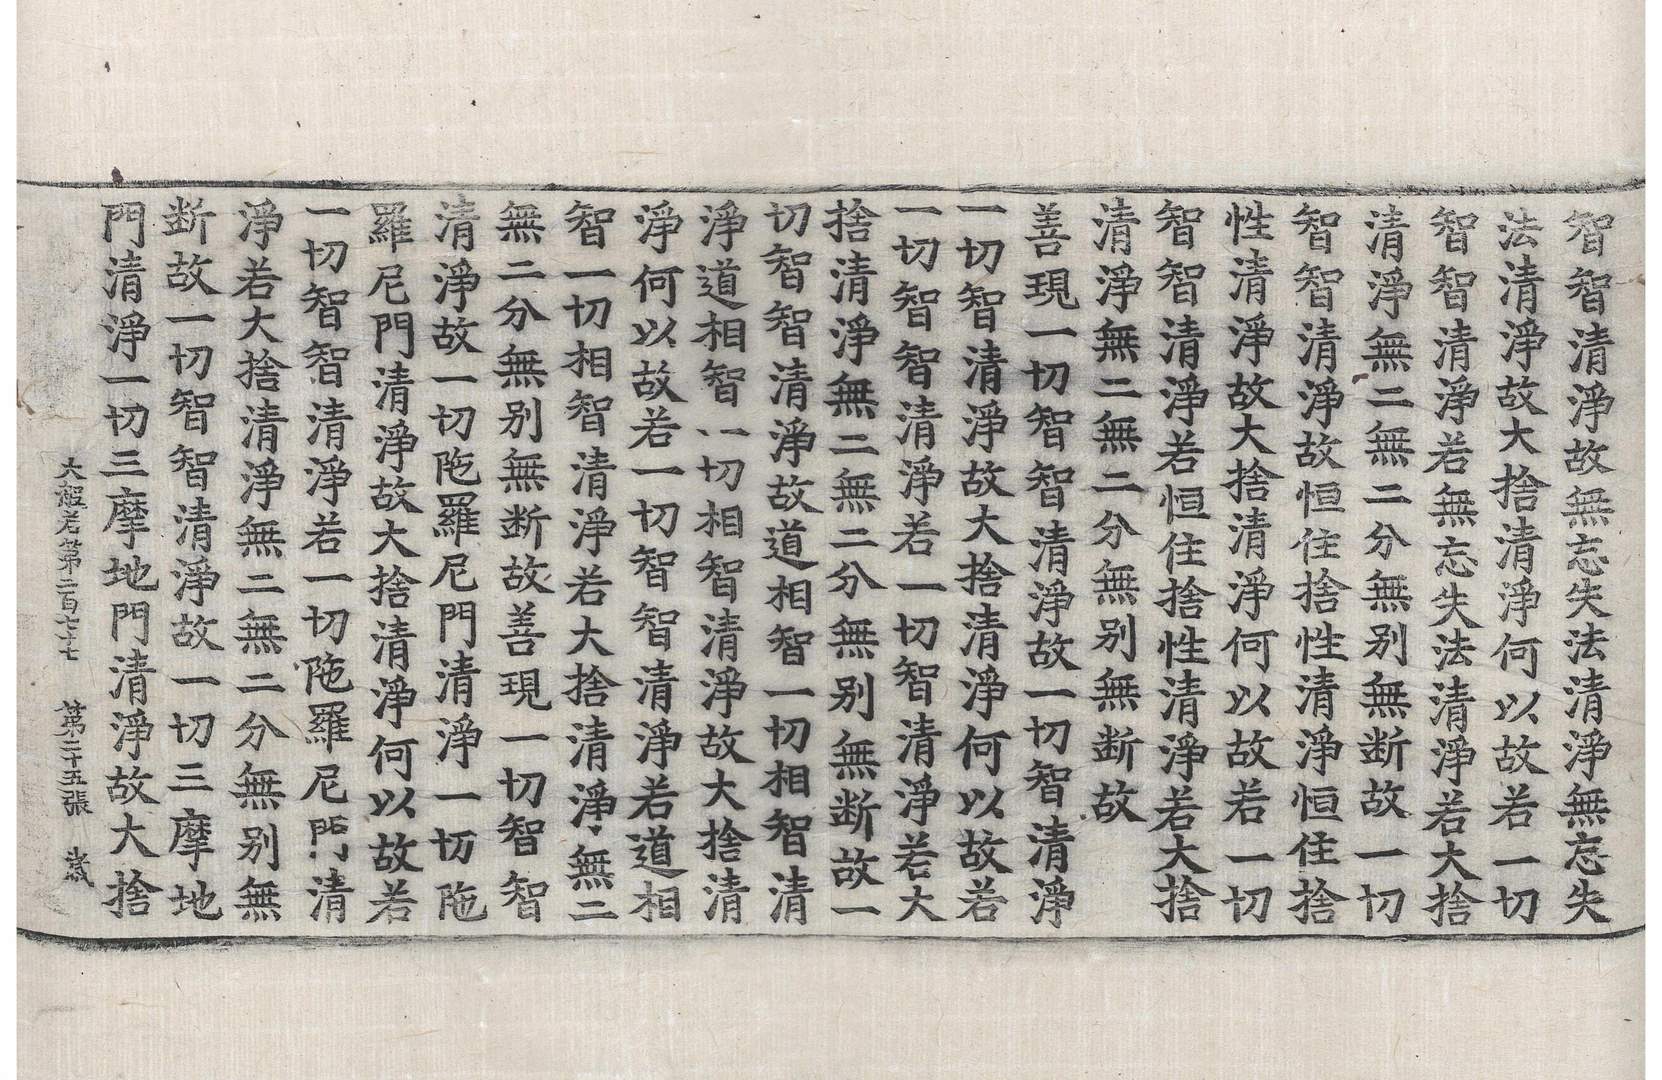 智智清淨故無忘失法清淨無忘失
法清淨故大捨清淨何以故若一切
智智清淨若無忘失法清淨若大捨
清淨無二無二分無別無断故一切
智智清淨故恒住捨性清淨恒住捨
性清淨故大捨清淨何以故若一切
智智清淨若恒住捨性清淨若大捨
清淨無二無二分無別無断故
善現一切智智清淨故一切智清淨
一切智清淨故大捨清淨何以故若
一切智智清淨若一切智清淨若大
捨清淨無二無二分無別無断故一
切智智清淨故道相智一切相智清
淨道相智一切相智清淨故大捨清
淨何以故若一切智智清淨若道相
智一切相智清淨若大捨清淨無二
無二分無別無断故善現一切智智
清淨故一切陁羅尼門清淨一切陁
羅尼門清淨故大捨清淨何以故若
一切智智清淨若一切陁羅尼門清
淨若大捨清淨無二無二分無別無
断故一切智智清淨故一切三摩地
門清淨一切三摩地門清淨故大捨
大般若第二百七十七 第二十五張 歲